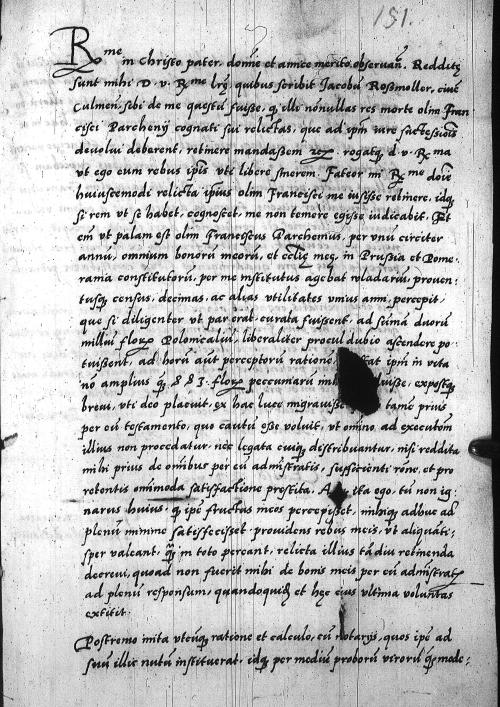 151.
R.me in Christo pater, domine et amice merito observan. Redditę
sunt mihi D. v. R.me lrę, quibus scribit Jacobū Roßmoller, civē
Culmen̄. sibi de me questū fuisse, q illi nōnullas res morte olim Fran
cisci Parchenij cognati sui relictas, que ad ipm̄ iure successiōis
devolui deberent, retinere mandaßem rogatq d. v. R.ma
vt ego eum rebus ip̄is vti libere sinerem. Fateor mi R.me dn̄e
huiuscemodi relicta ip̄ius olim Francisci me iußisse retinere, idq
si rem vt se habet, cognoscet, me non temere egisse iudicabit. Et
em̄ vt palam est olim Franciscus Parchemus, per vnū circiter
annū, omnium bonorū meorū, et ecclię meę, in Prußia et Pome-
rania constitutorū, per me institutus agebat vladariū, proven-
tusq census, decimas, ac alias vtilitates vnius anni, percepit,
que si diligenter vt par erat, curata fuissent, ad sūmā duorū
milliū flor Polonicaliū, liberaliter procul dubio ascendere po-
tuissent, ad horū aūt perceptorū ratione ipm̄ in vita
no amplius q̄ 883. flor pecuniarū expostq
brevi, vti deo placuit, ex hac luce migraviße tamē prius
per eū testamento, quo cautū eße voluit, vt omīno ad executionē
illius non procedatur, nec legata cuiq distribuantur, nisi reddita
mihi prius de omībus per eū admīstratis, sufficienti rōne, et pro
retentis om̄imoda satisfactione prestita. ita ego, cū non ig-
narus huius, q ip̄e fructus meos percepißet, mihiq adhuc ad
plenū minime satisfecißet providens rebus meis, vt aliquāti-
sper valeant, q̄ in toto pereant, relicta illius tādiu retinenda
decrevi, quoad non fuerit mihi de bonis meis per eū admīstratis
ad plenū responsum, quandoquidē et hęc eius vltima voluntas
extitit.
Postremo inita vtcūq ratione et calculo, cū notarijs, quos ip̄e ad
suū illic nutū instituerat, idq per mediū proborū virorū q̄ mode-